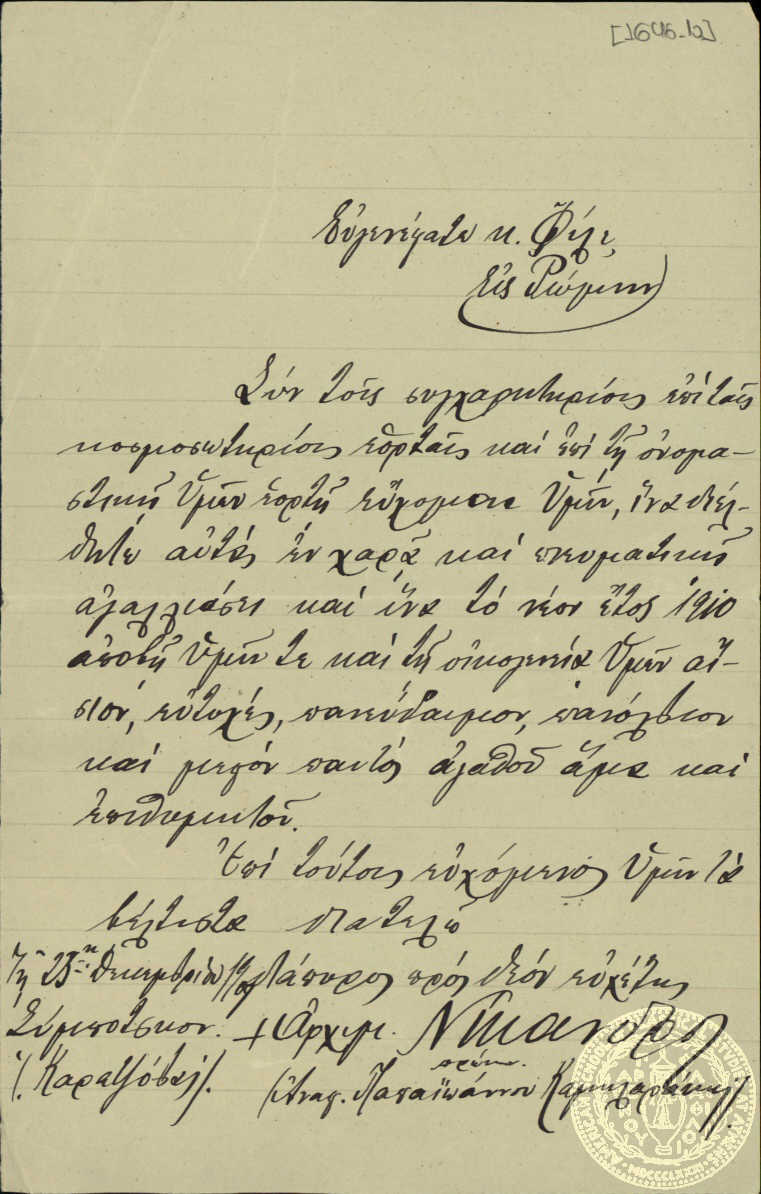 [1646-12]
Εὐγενέστατε κ. Φίλε,
Εἰς Ρώμην
Σὺν τοῖς συγχαρητηρίοις ἐπὶ ταῖς
κοσμοσωτηρίοις ἑορταῖς καὶ ἐπὶ τῇ ὀνομα-
στικῇ Ὑμῶν ἑορτῇ εὔχομαι Ὑμῖν, ἵνα διέλ-
θητε αὐτὰς ἐν χαρᾷ καὶ πνευματικῇ
ἀγαλλιάσει καὶ ἵνα τὸ νέον ἔτος 1910
ἀποβῇ Ὑμῖν τε καὶ τῇ οἰκογενείᾳ Ὑμῶν αἴ-
σιον, εὐτυχές, πανεύδαιμον, πανόλβιον
καὶ μεστὸν παντὸς ἀγαθοῦ ἅμα καὶ
ἐπιθυμητοῦ.
Ἐπὶ τούτοις εὐχόμενος Ὑμῖν τὰ
βέλτιστα διατελῶ
Τῇ 23ῃ Δεκεμβρίου 1909 διάπυρος πρὸς Θεὸν εὐχέτης
Σύμποτσκον. + Ἀρχιμ. Νικάνορος
(. Καρατζόβαλ). (Ἀναγ. Παπαϊωάννου
πρώην.